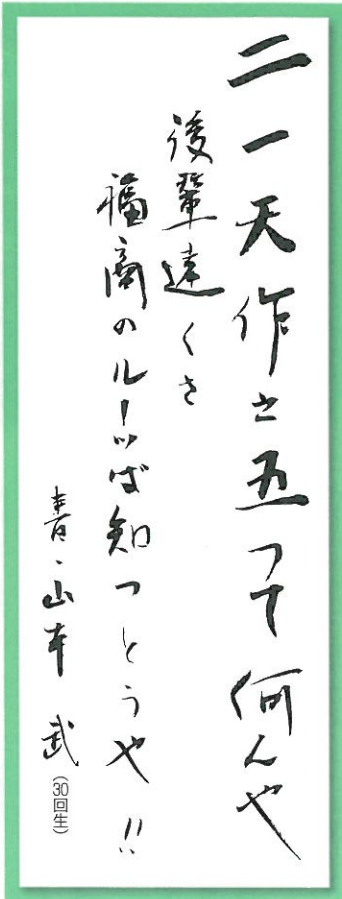 二一天作之五って何んや
後輩達くさ
福商のルーツば知っとうや!!
青・山本 武(30回生)